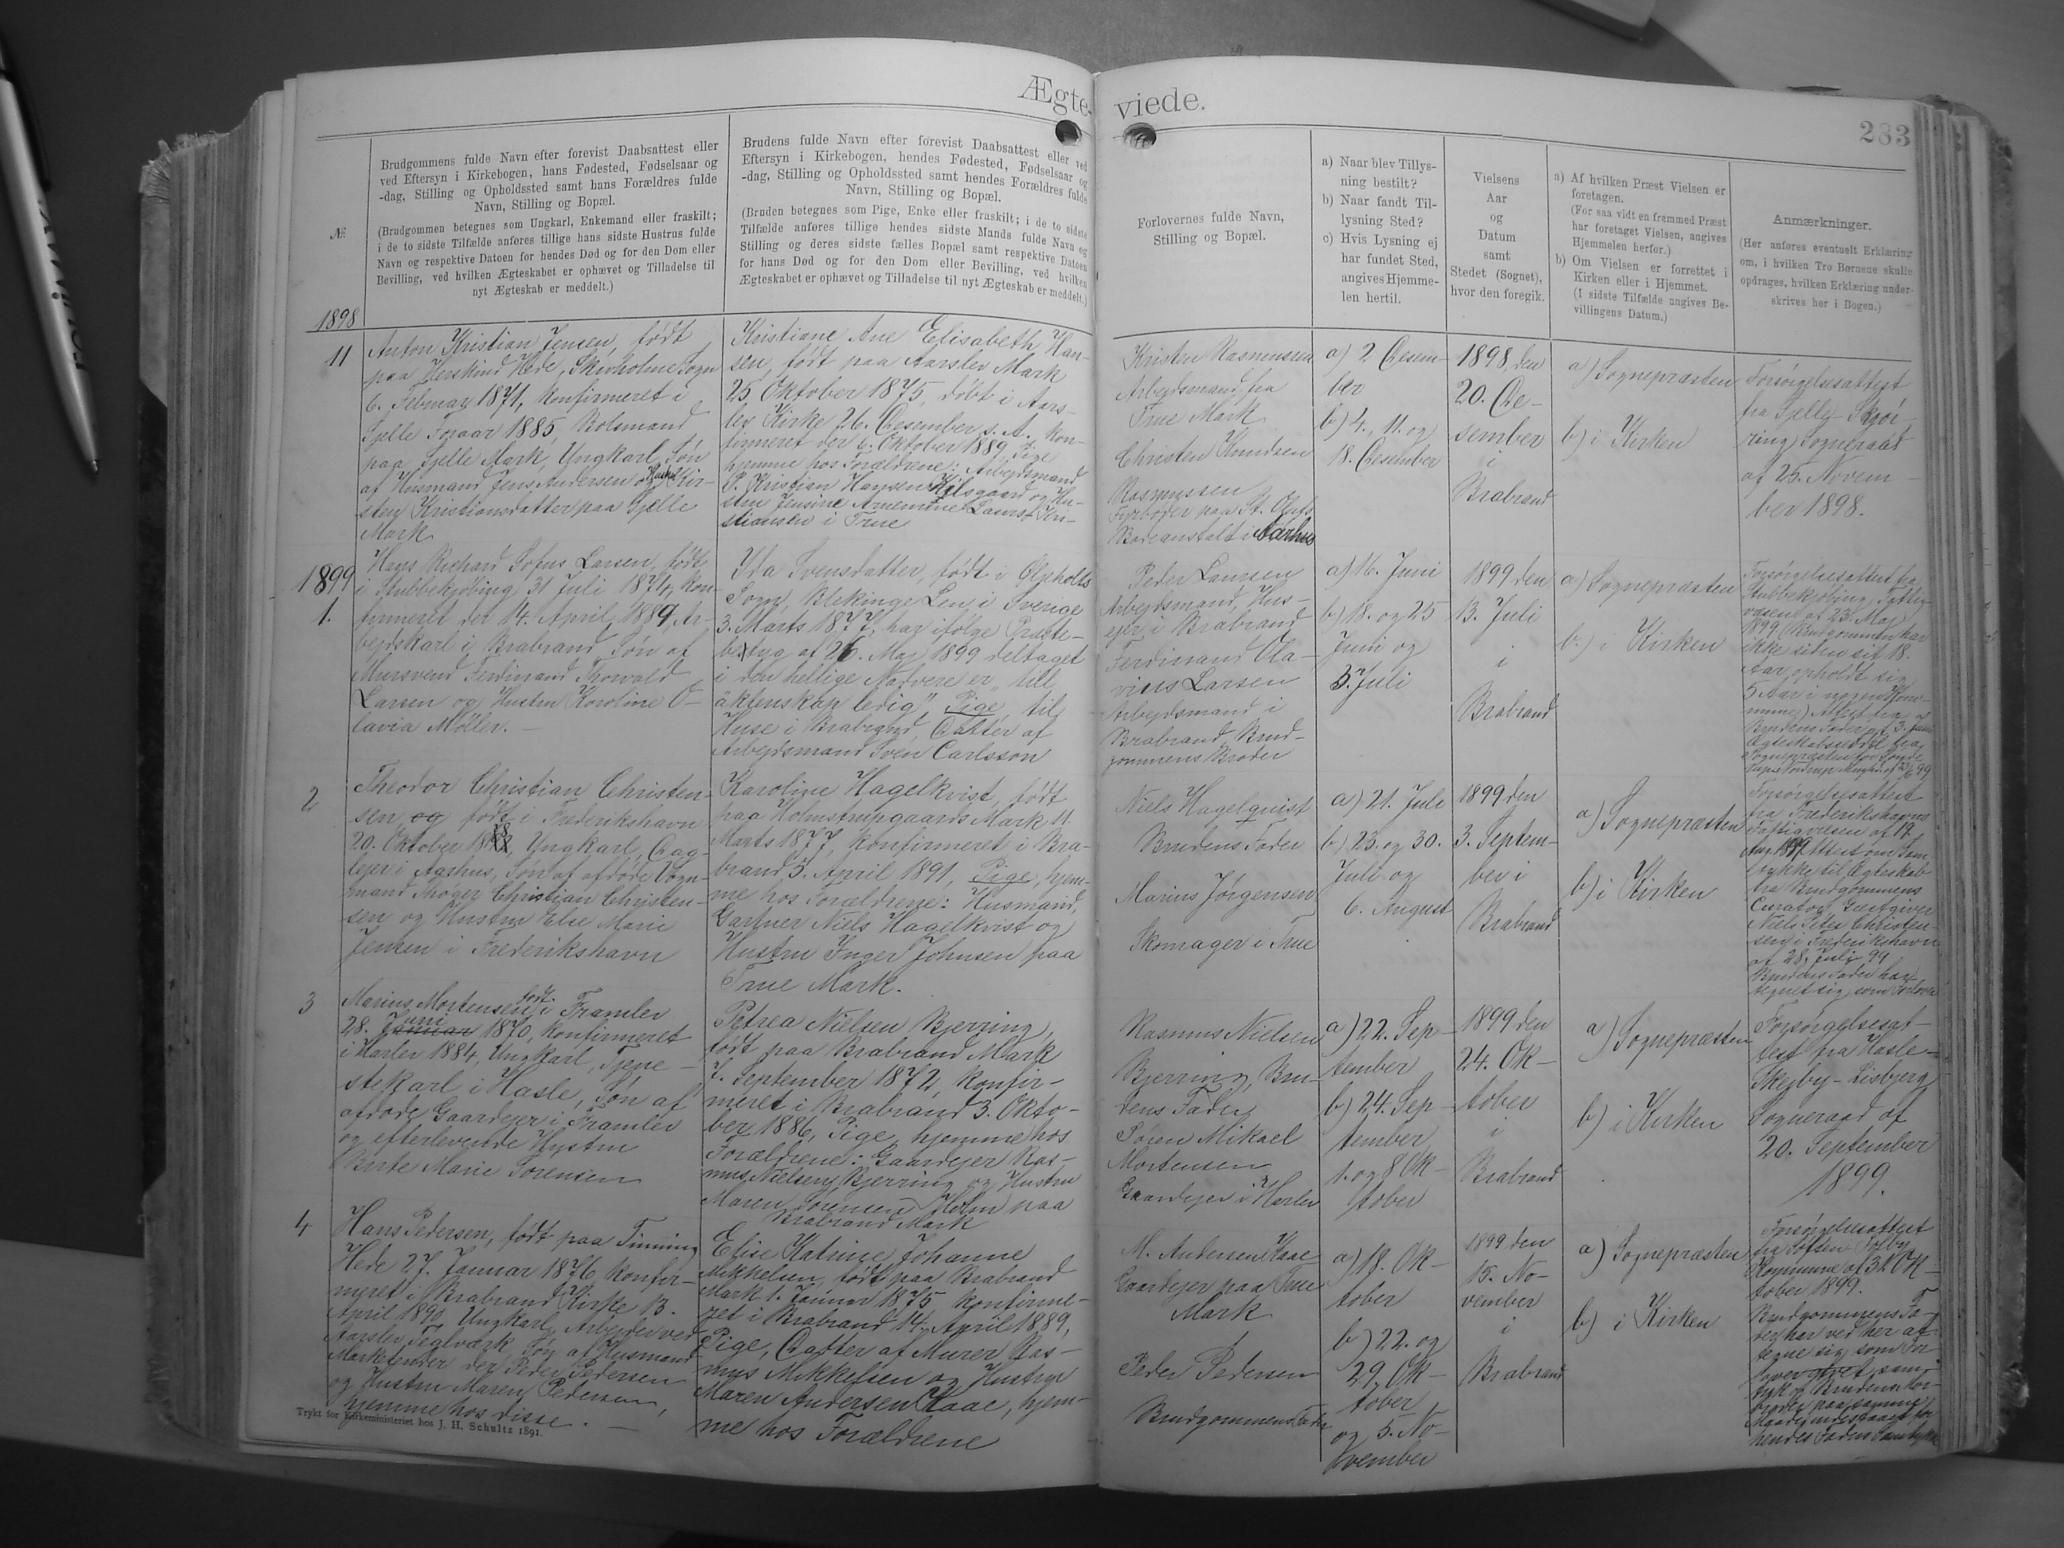 Ægte-
viede.
283
№
Brudgommens fulde Navn efter forevist Daabsattest eller
ved Eftersyn i Kirkebogen, hans Fødested, Fødselsaar og
-dag, Stilling og Opholdssted samt hans Forældres fulde
Navn, Stilling og Bopæl.
(Brudgommen betegnes som Ungkarl, Enkemand eller fraskilt;
i de to sidste Tilfælde anføres tillige hans sidste Hustrus fulde
Navn og respektive Datoen for hendes Død og for den Dom eller
Bevilling, ved hvilken Ægteskabet er ophævet og Tilladelse til
nyt Ægteskab er meddelt.)
Brudens fulde Navn efter forevist Daabsattest eller ved
Eftersyn i Kirkebogen, hendes Fødested, Fødselsaar og
-dag, Stilling og Opholdssted samt hendes Forældres fulde
Navn, Stilling og Bopæl.
(Bruden betegnes som Pige, Enke eller fraskilt; i de to sidste
Tilfælde anføres tillige hendes sidste Mands fulde Navn og
Stilling og deres sidste fælles Bopæl samt respektive Datoen
for hans Død og for den Dom eller Bevilling, ved hvilken
Ægteskabet er ophævet og Tilladelse til nyt Ægteskab er meddelt.)
Forlovernes fulde Navn,
Stilling og Bopæl.
a) Naar blev Tillys-
ning bestilt?
b) Naar fandt Til-
lysning Sted?
c) Hvis Lysning ej
har fundet Sted,
angives Hjemme-
len hertil.
Vielsens
Aar
og
Datum
samt
Stedet (Sognet),
hvor den foregik.
a) Af hvilken Præst Vielsen er
foretagen.
(For saa vidt en fremmed Præst
har foretaget Vielsen, angives
Hjemmelen herfor.)
b) Om Vielsen er forrettet i
Kirken eller i Hjemmet.
(I sidste Tilfælde angives Be-
villingens Datum.)
Anmærkninger.
(Her anføres eventuelt Erklæring
om, i hvilken Tro Børnene skulle
opdrages, hvilken Erklæring under-
skrives her i Bogen.)
1898
11
Anton Kristian Jensen, født
paa Herskind Hede, Skivholme Sogn
6. Februar 1871, konfirmeret i
Sjelle Foraar 1885, Bolsmand
paa Sjelle Mark, Ungkarl, Søn
af Husmand Jens Andersen og Hustru Kir-
sten Kristiansdatter paa Sjelle
Mark
Kristiane Ane Elisabeth Han-
sen, født paa Aarslev Mark
25. Oktober 1875, døbt i Aars-
lev Kirke 26. December s. A., kon-
firmeret der 6. Oktober 1889, Pige
hjemme hos Forældrene: Arbejdsmand
P. Kristian Hansen Kilsgaard og Hu-
stru Jensine Annemine Laurs
stiansen i True
Kristen Rasmussen
Arbejdsmand fra
True Mark
Christen Knudsen
Rasmussen
Fyrbøder paa St. Olufs
Badeanstalt i Aarhus
a) 2. Decem-
ber
b) 4., 11. og
18. December
1898, den
20. De-
cember
i
Brabrand
a) Sognepræsten
b) i Kirken
Forsørgelsesattest
fra Sjelle-Skjør-
ring Sogneraad
af 25. Novem-
ber 1898.
1899
1.
Hans Richard Sofus Larsen, født
i Stubbekjøbing 31 Juli 1874, kon-
firmeret der 14. April 1889, Ar-
bejdskarl i Brabrand, Søn af
Mursvend Ferdinand Thorvald
Larsen og Hustru Karoline O-
lavia Møller. -
Ida Svensdatter, født i
Sogn, Blekinge Len, i Sverige
3. Marts 1877, har ifølge Præste-
betyg af 26. Maj 1899 deltaget
i den hellige Nadvere, er "till
äktenskap ledig" Pige til
Huse i Brabrand, Datter af
Arbejdsmand Sven Carlsson
Peder Laursen
Arbejdsmand, Hus-
ejer i Brabrand
Ferdinand Ola-
vius Larsen
Arbejdsmand i
Brabrand, Brud-
gommens Broder
a) 16. Juni
b) 18. og 25
Juni og
3. Juli
1899 den
13. Juli
i
Brabrand
a) Sognepræsten
b.) i Kirken
Forsørgelsesattest fra
Stubbekjøbing Fattig-
væsen af 23. Maj
1899 (Brudgommen har
ikke siden sit 18.
Aar opholdt sig
5 Aar i nogen Kom-
mune)
2
Theodor Christian Christen-
sen og født i Frederikshavn
20. Oktober 18, Ungkarl, Dag-
lejer i Aarhus, Søn af afdøde Vogn-
mand Thøger Christian Christen-
sen og Hustru Else Marie
Jensen i Frederikshavn
Karoline Hagelkvist, født
paa Holmstrupgaards Mark 11
Marts 1877, konfirmeret i Bra-
brand 5. April 1891, Pige, hjem-
me hos Forældrene: Husmand,
Gartner Niels Hagelkvist og
Hustru Inger Johnsen paa
True Mark.
Niels Hagelquist
Brudens Fader
Marius Jørgensen
Skomager i True
a) 21. Juli
b) 23. og 30.
Juli og
6. August
1899 den
3. Septem-
ber i
Brabrand
a) Sognepræsten
b) i Kirken
Forsørgelsesattest
fra Frederikshavns
Fattigvæsen af 17.
Aug. 1899. Attest om Sam-
tykke til Ægteskab
fra Brudgommens
Curator, Gæstgiver
Niels Peter Christen-
sen i Frederikshavn
af 28. Juli 99
Brudens Fader har
tegnet sig som Forlover
3
Marius Mortensen født i Framlev
28. Januar Juni 1870, konfirmeret
i Harlev 1884, Ungkarl, Tjene-
stekarl i Hasle, Søn af
afdøde Gaardejer i Framlev
og efterlevende Hustru
Birte Marie Sørensen
Petrea Nielsen Bjerring,
født paa Brabrand Mark
7. September 1872, konfir-
meret i Brabrand 3. Okto-
ber 1886, Pige, hjemme hos
Forældrene: Gaardejer Ras-
mus Nielsen Bjerring og Hustru
Maren Sørensen Holm paa
Brabrand Mark
Rasmus Nielsen
Bjerring, Bru-
dens Fader
Søren Mikael
Mortensen
Gaardejer i Harlev
a) 22. Sep-
tember
b) 24. Sep-
tember,
1. og 8 Ok-
tober
1899 den
24. Ok-
tober
i
Brabrand
a) Sognepræsten
b) i Kirken
Forsørgelsesat-
test fra Hasle-
Skejby-Lisbjerg
Sogneraad af
20. September
1899.
4
Hans Pedersen, født paa Tinning
Hede 27. Januar 1876 konfir-
meret i Brabrand Kirke 13.
April 1890, Ungkarl, Arbejder ved
Aarslev Teglværk, Søn af Husmand
Marketender der Peder Pedersen
og Hustru Maren Pedersen,
hjemme hos disse. -
Elise Katrine Johanne
Mikkelsen, født paa Brabrand
Mark 1. Januar 1875 konfirme-
ret i Brabrand 14. April 1889,
Pige, Datter af Murer Ras-
mus Mikkelsen og Hustru
Maren Andersen Kaae, hjem-
me hos Forældrene
M. Andersen Kaae
Gaardejer paa True
Mark
Peder Pedersen
Brudgommens Fader
a) 19. Ok-
tober
b) 22. og
29. Ok-
tober
og 5. No-
vember
1899 den
15. No-
vember
i
Brabrand
a) Sognepræsten
b) i Kirken
Forsørgelsesattest
fra
Kommune af 31 Ok-
tober 1899.
Brudgommens Fa-
der har ved her at
tegne sig som For-
lover
Trykt for Kirkeministeriet hos J. H. Schultz 1891.